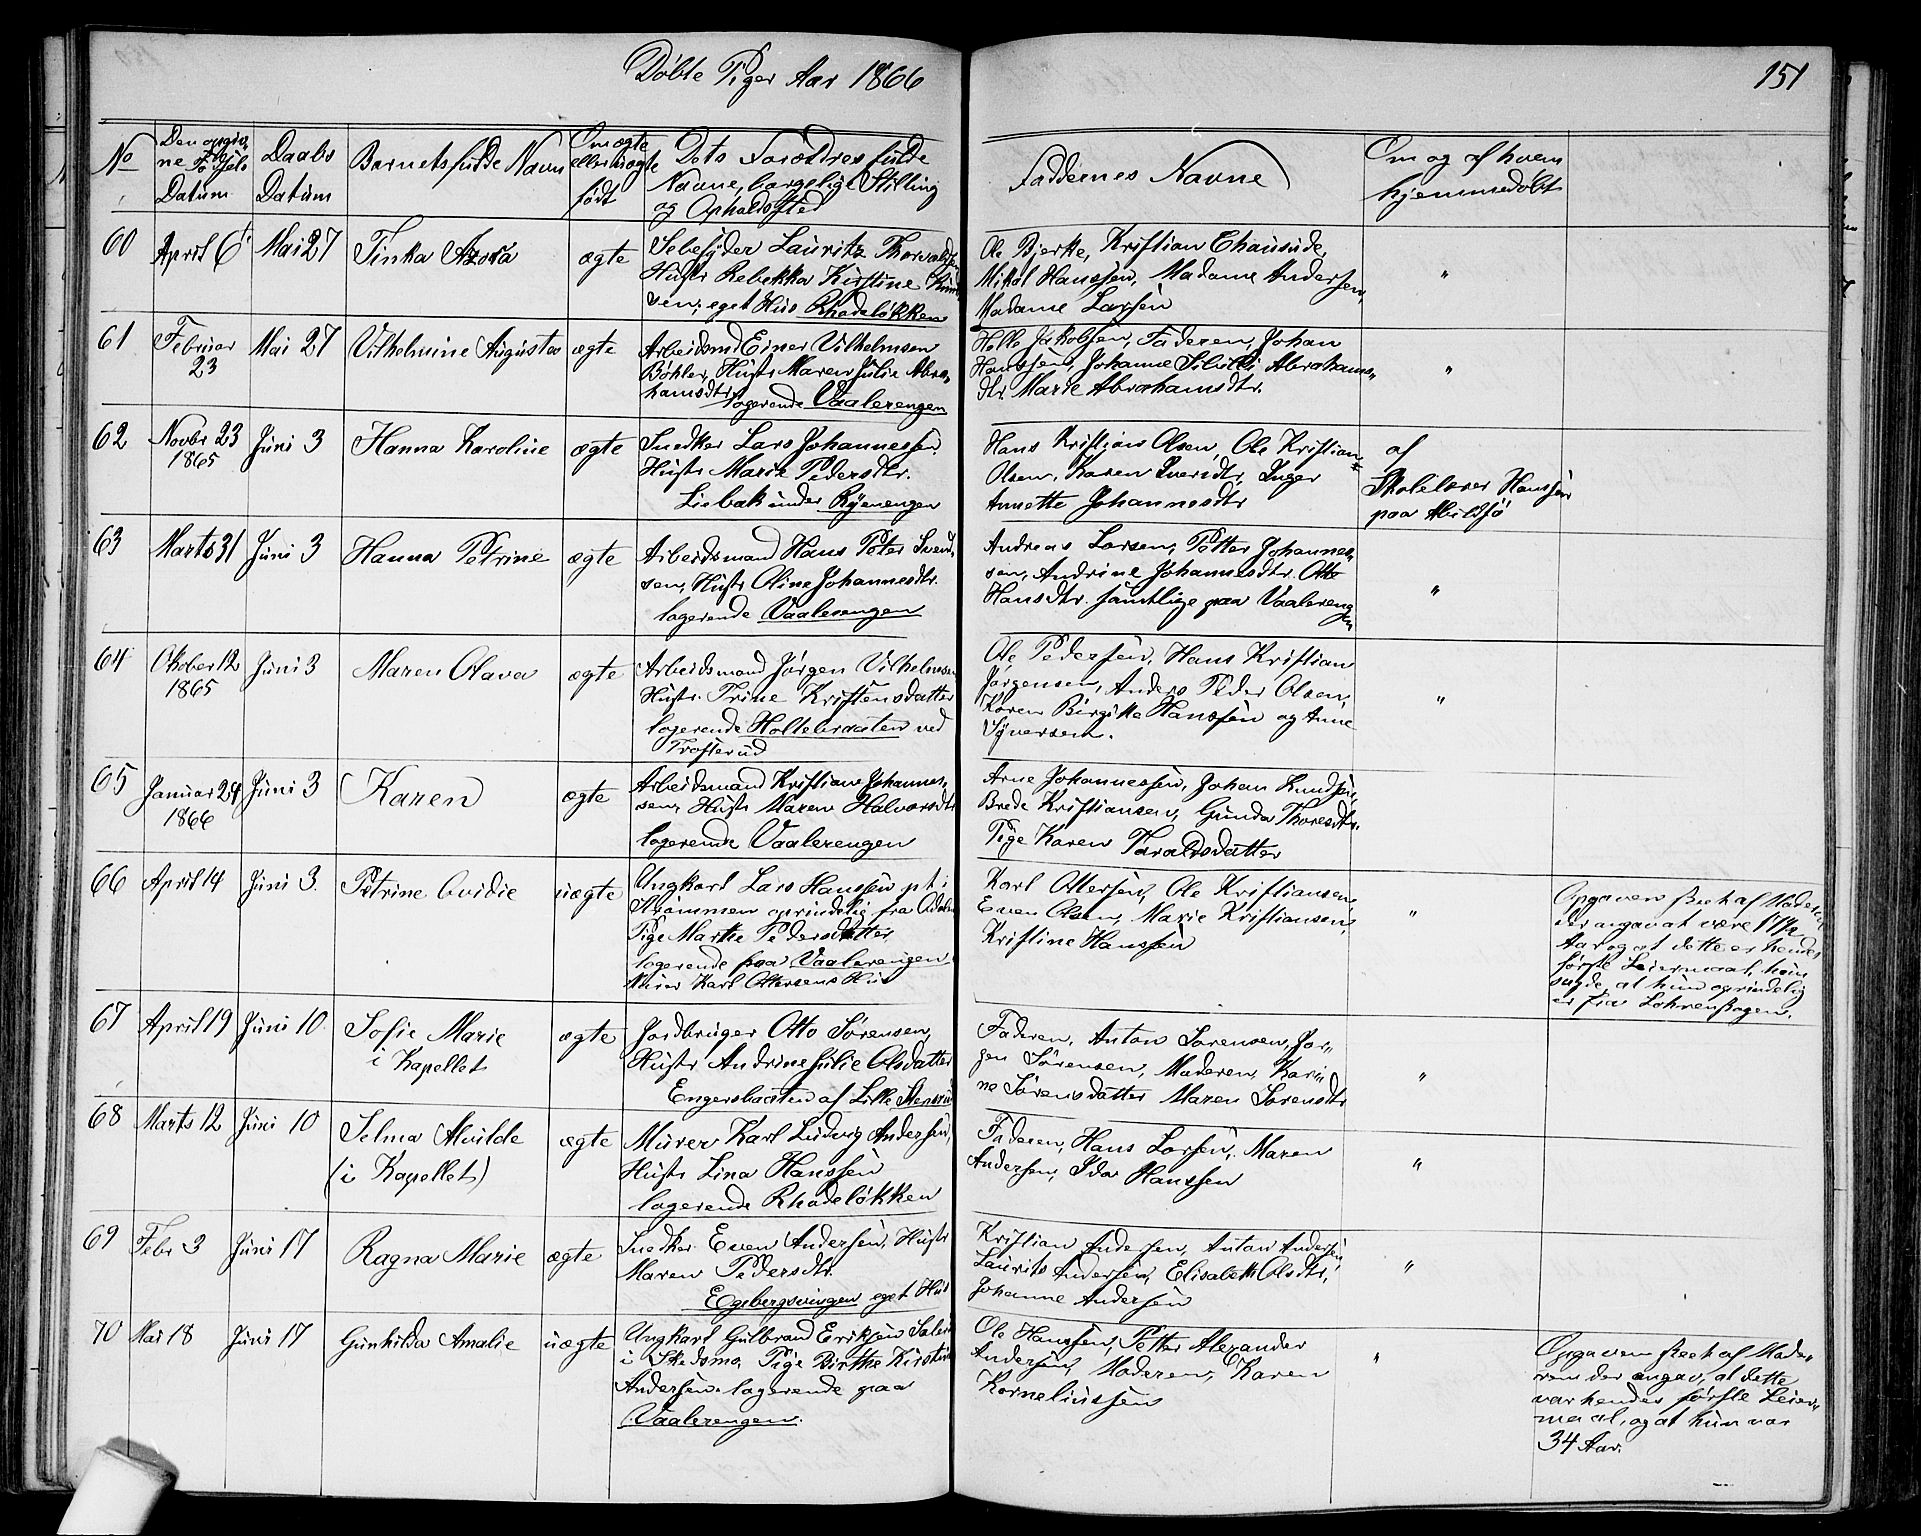 Døbte Piger Aar 1866
151
No
Den opgiv-
ne Fødsels
Datum
Daabs
Datum
Barnets fulde Navn
Om ægte
eller uægte
født
Dets Forældres fulde
Navne, borgelige Stilling
og Opholdssted
Faddernes Navne
Om og af hvem
hjemmedøbt
60 April 6 Mai 27 Tinka Azora ægte
Sebesyder Lauritz Thorvaldsen
Hustr Rebekka Kirstine
sen, eget Hus Rhodeløkken
Ole Bjerke, Kristian Chausude,
Mikal Hanssen, Madame Andersen,
Madame Larsen
"
61 Februar 23 Mai 27 Vilhelmine Augusta ægte
Arbeidsmd Einer Vilhelmsen
Bøhler, Hustr Maren Julie Abra-
hamsdtr logerende Vaalerengen
Helle Jakobsen, Faderen, Johan
Hanssen, Johanne Sibilli Abrahams-
dtr. Marte Abrahamsdtr.
"
62 Novbr 23 1865 Juni 3 Hanna Karoline ægte
Snedker Lars Johannessen
Hustr Marie Pedersdtr.
Lisbak under Ryenengen
Hans Kristian Olsen, Ole Kristian
Olsen, Karen Iversdtr, Inger
Annette Johannesdtr
af
Skolelærer Hanssen
paa Abildsø
63 Marts 31 Juni 3 Hanna Petrine ægte
Arbeidsmand Hans Peter Svend-
sen, Hustr Oline Johannesdtr.
logerende Vaalerengen
Andreas Larsen, Petter Johannes-
sen, Andrine Johannesdtr. Otte
Hansdtr. samtlige paa Vaalereng
en
"
64 Oktober 12 1865 Juni 3 Maren Olava ægte
Arbeidsmand Jørgen Vilhelmsen
Hustr. Trine Kristensdatter
logerende Holtebraaten ved
Trosterud
Ole Pedersen, Hans Kristian
Jørgensen, Anders Peder Olsen,
Karen Birgitte Hanssen og Anne
Syversen.
"
65 Januar 24 1866 Juni 3 Karen ægte
Arbeidsmand Kristian Johannes-
sen, Hustr Maren Halvorsdtr
logerende Vaalerengen
Arne Johannessen, Johan Knudsen,
Brede Kristiansen, Gunda Thoresdtr.
Pige Karen Taraldsdatter
66 April 14 Juni 3. Petrine Ovidie uægte
Ungkarl Lars Hanssen pt. i
Strømmen oprindelig fra Odalen
Pige Marthe Pedersdatter
logerende paa Vaalerengen
Murer Karl Ottersens Hus
Karl Ottersen, Ole Kristiansen,
Even Olsen, Marie Kristiansen,
Kristine Hanssen
"
Opgaven skeet af Moderen,
der angav at være 17½
Aar og at dette er hendes
første Leiermaal, hun
sagde, at hun oprindelig
er fra Lohrenskogen.
67 April 19 Juni 10 Sofie Marie
i Kapellet
ægte
Jordbruger Otto Sørensen,
Hustr Andrine Julie Olsdatter
Engersbraaten af Lille Stensrud
Faderen, Anton Sørensen, Jør-
gen Sørensen, Moderen, Kari-
ne Sørensdatter Maren Sørensdtr
"
68 Marts 12 Juni 10 Selma Alvilde
(i Kapellet)
ægte
Murer Karl Ludvig Andersen,
Hustr Lina Hanssen
logerende Rhodeløkken
Faderen, Hans Larsen, Maren
Andersen, Ida Hanssen
"
69 Febr 3 Juni 17 Ragna Marie ægte
Snedker Even Andersen, Hustr
Maren Pedersdtr.
Egebergsvingen eget Hus
Kristian Andersen, Anton Andersen,
Laurits Andersen, Elisabeth Olsdtr,
Johanne Andersen
"
70 Mai 18 Juni 17 Gunhilda Amalie uægte
Ungkarl Gulbrand Eriksen
i Skedsmo, Pige Birthe Kirstine
Andersen. logerende paa
Vaalerengen.
Ole Hanssen, Petter Alexander
Andersen, Moderen, Karen
Korneliussen
"
Opgaven skeet af Mode-
ren der angav, at dette
var hendes første Leier-
maal, og at hun var
34 Aar.